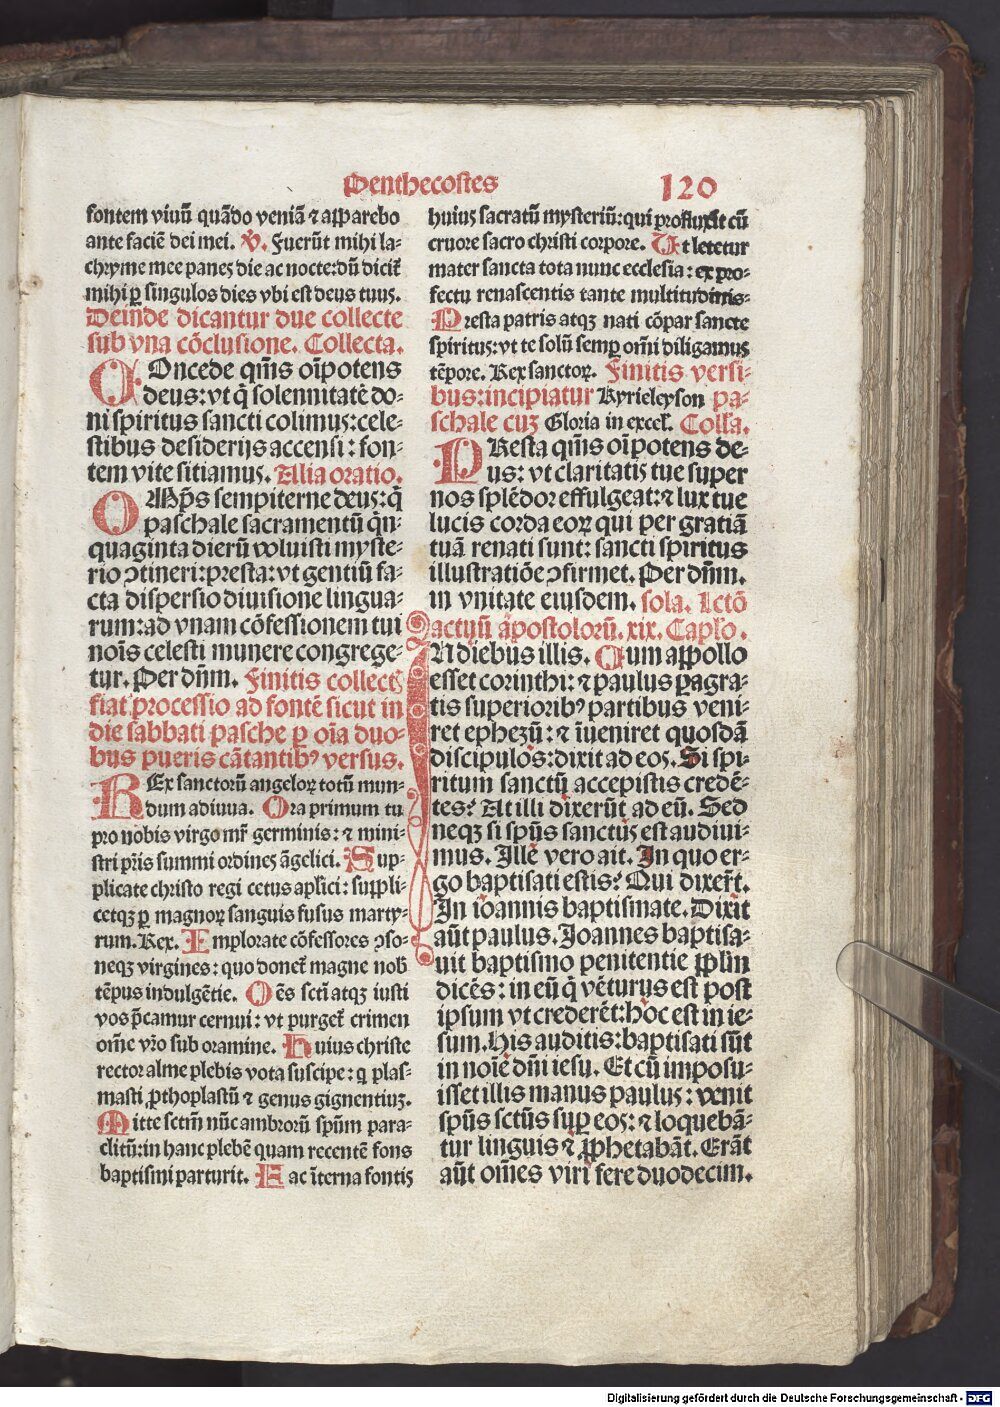 Penthecostes
120
fontem viuū quādo veniā ⁊ apparebo
ante faciē dei mei. ℣. Fuerūt mihi la-
chryme mee paneç die ac nocte:dū dicit̄
mihi ꝑ singulos dies vbi est deus tuus.
Deinde dicantur due collecte
sub vna cōclusione. Collecta.
COncede qm̄s oīpotens
deus:vt q̄ solennitatē do-
ni spiritus sancti colimus:cele-
stibus desiderijs accensi: fon-
tem vite sitiamus. Alia oratio.
OMp̄s sempiterne deus:q̄
paschale sacramentū q̄n-
quaginta dierū voluisti myste-
rio ↄtineri:presta:vt gentiū fa-
cta dispersio diuisione lingua-
rum:ad vnam cōfessionem tui
noīs celesti munere congrege-
tur. Per dn̄m. Finitis collect̄
fiat processio ad fontē sicut in
die sabbati pasche ꝑ oīa duo-
bus pueris cātantibꝰ versus.
REx sanctorū angeloꝝ totū mun-
dum adiuua. Ora primum tu
pro nobis virgo mr̄ germinis: ⁊ mini-
stri pr̄is summi ordines āgelici. Sup-
plicate christo regi cetus apl̄ici: suppli-
cetqꝫ ꝑ magnoꝝ sanguis fusus marty-
rum. Rex. Implorate cōfessores ↄso-
neqꝫ virgines: quo donet̄ magne nob̄
tēpus indulgētie. Oēs sct̄i atqꝫ iusti
vos p̄camur cernui: vt purget̄ crimen
om̄e vr̄o sub oramine. Huius christe
rector alme plebis vota suscipe: q plas-
masti ꝓthoplastū ⁊ genus gignentiuꝫ.
Mitte sctm̄ nūc amborū spūm para-
clitū:in hanc plebē quam recentē fons
baptismi parturit. Fac īterna fontis
huius sacratū mysteriū:qui profluxit cū
cruore sacro christi corpore. Ut letetur
mater sancta tota nunc ecclesia: ex pro-
fectu renascentis tante multitudinis-
Presta patris atqꝫ nati cōpar sancte
spiritus:vt te solū semꝑ om̄i diligamus
tēpore. Rex sanctoꝝ. Finitis versi-
bus:incipiatur Kyrieleyson pa-
schale cuꝫ Gloria in excel̄. Coll̄a.
PResta qm̄s oīpotens de-
us: vt claritatis tue super
nos splēdor effulgeat:⁊ lux tue
lucis corda eoꝝ qui per gratiā
tuā renati sunt: sancti spiritus
illustratiōe ↄfirmet. Per dn̄m.
in vnitate eiusdem. sola. Lctō
actuū apostolorū. xix. Capl̄o.
IN diebus illis. Cum appollo
esset corinthi: ⁊ paulus ꝑagra-
tis superioribꝰ partibus veni-
ret ephezū: ⁊ īueniret quosdā
discipulos:dixit ad eos. Si spi-
ritum sanctū accepistis credē-
tes? At illi dixerūt ad eū. Sed
neqꝫ si spūs sanctus est audiui-
mus. Ille vero ait. In quo er-
go baptisati estis? Qui dixer̄t.
In ioannis baptismate. Dixit
aūt paulus. Joannes baptisa-
uit baptismo penitentie ppl̄m
dicēs: in eū q̄ vēturus est post
ipsum vt crederēt:hoc est in ie-
sum. His auditis:baptisati sūt
in noīe dn̄i iesu. Et cū imposu-
isset illis manus paulus: venit
spūs sctūs suꝑ eos: ⁊ loquebā-
tur linguis ⁊ ꝓphetabāt. Erāt
aūt om̄es viri fere duodecim.
Digitalisierung gefördert durch die Deutsche Forschungsgemeinschaft - DFG